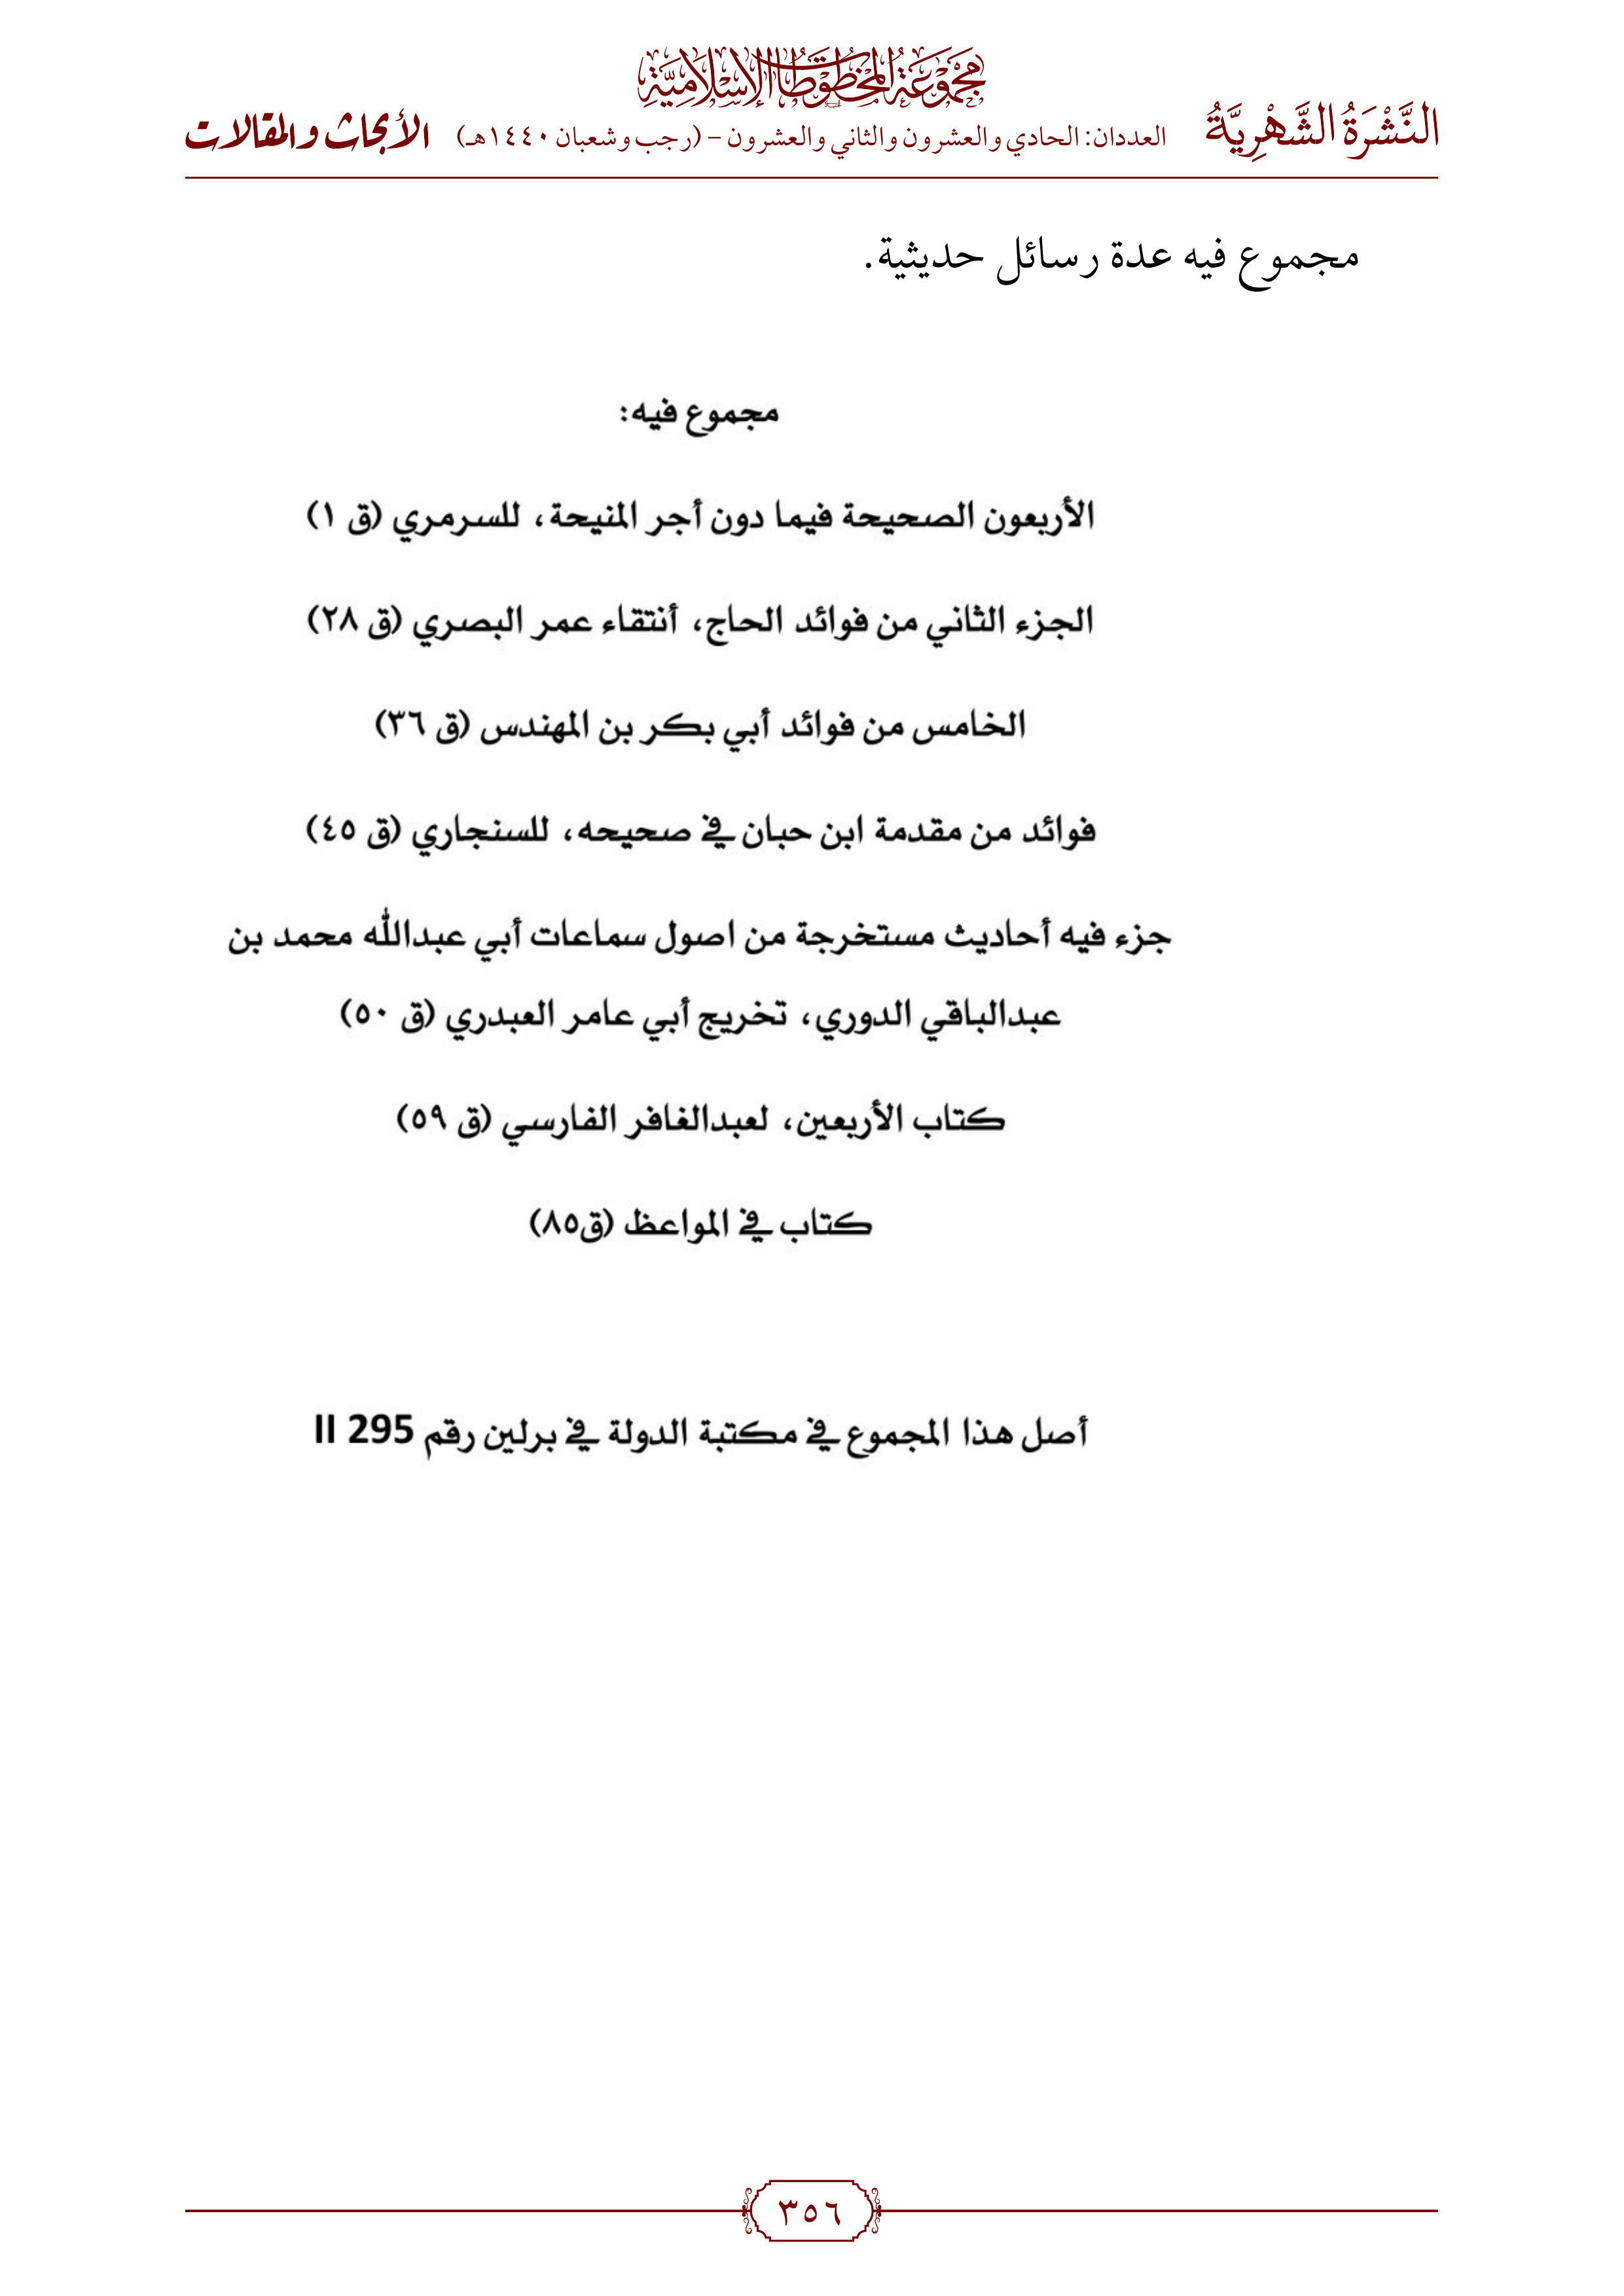 مَجْمُوعَةُ المَخْطُوطَاتِ الإِسْلَامِيَّةِ
النَّشْرَةُ الشَّهْرِيَّةُ العددان: الحادي والعشرون والثاني والعشرون – (رجب وشعبان ١٤٤٠هـ) الأبحاث والمقالات
مجموع فيه عدة رسائل حديثية.
مجموع فيه:
الأربعون الصحيحة فيما دون أجر المنيحة، للسرمري (ق ١)
الجزء الثاني من فوائد الحاج، أنتقاء عمر البصري (ق ٢٨)
الخامس من فوائد أبي بكر بن المهندس (ق ٣٦)
فوائد من مقدمة ابن حبان في صحيحه، للسنجاري (ق ٤٥)
جزء فيه أحاديث مستخرجة من اصول سماعات أبي عبدالله محمد بن
عبدالباقي الدوري، تخريج أبي عامر العبدري (ق ٥٠)
كتاب الأربعين، لعبدالغافر الفارسي (ق ٥٩)
كتاب في المواعظ (ق٨٥)
أصل هذا المجموع في مكتبة الدولة في برلين رقم 295 II
٣٥٦